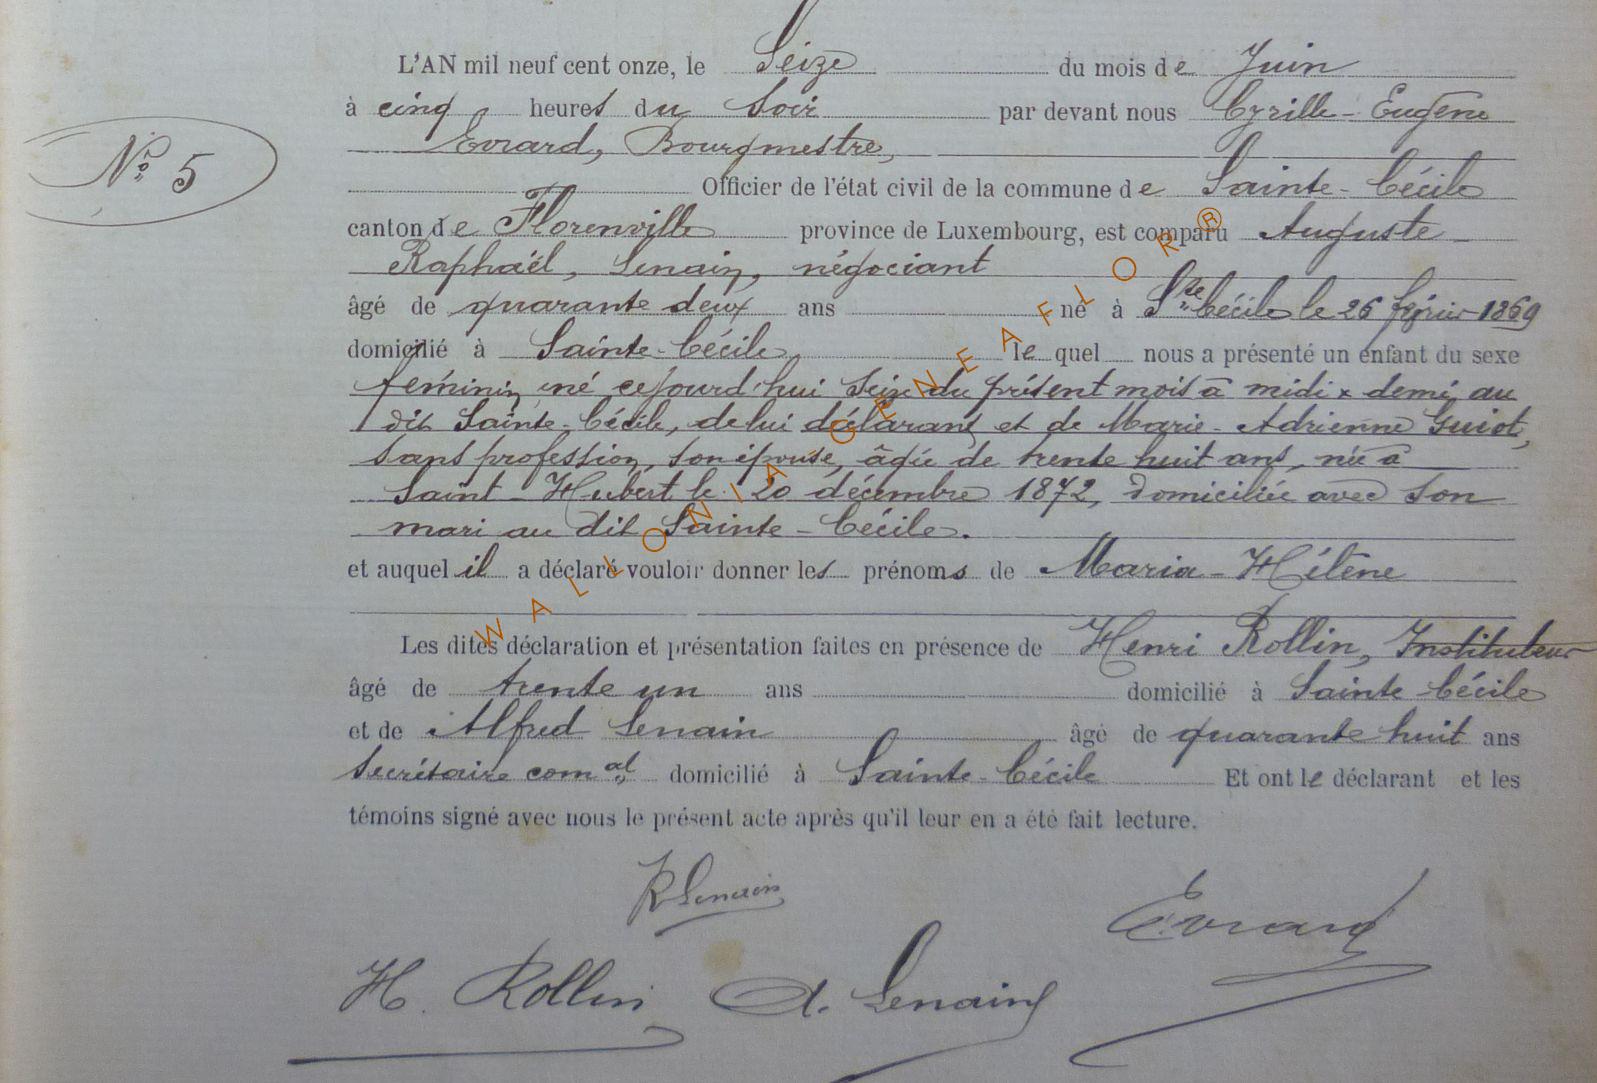 L'AN mil neuf cent onze, le Seize du mois de Juin
à cinq heures du Soir par devant nous Cyrille-Eugène
Evrard, Bourgmestre,
N° 5
Officier de l'état civil de la commune de Sainte-Cécile
canton de Florenville province de Luxembourg, est comparu Auguste
Raphaël, Lenain, négociant
âgé de quarante deux ans né à Ste Cécile le 26 février 1869
domicilié à Sainte-Cécile, lequel nous a présenté un enfant du sexe
féminin, né cejourd'hui Seize du présent mois à midi & demi, au
dit Sainte-Cécile, de lui déclarant et de Marie-Adrienne Guiot,
sans profession, son épouse, âgée de trente huit ans, née à
Saint-Hubert le 20 décembre 1872, domiciliée avec son
mari au dit Sainte-Cécile.
et auquel il a déclaré vouloir donner les prénoms de Maria-Hélène
Les dites déclaration et présentation faites en présence de Henri Rollin, Instituteur
âgé de trente un ans domicilié à Sainte Cécile
et de Alfred Lenain âgé de quarante huit ans
Secrétaire comal domicilié à Sainte-Cécile Et ont le déclarant et les
témoins signé avec nous le présent acte après qu'il leur en a été fait lecture.
R Lenain
Evrard
H. Rollin A. Lenain
WALLONIA GENEAFLOR®